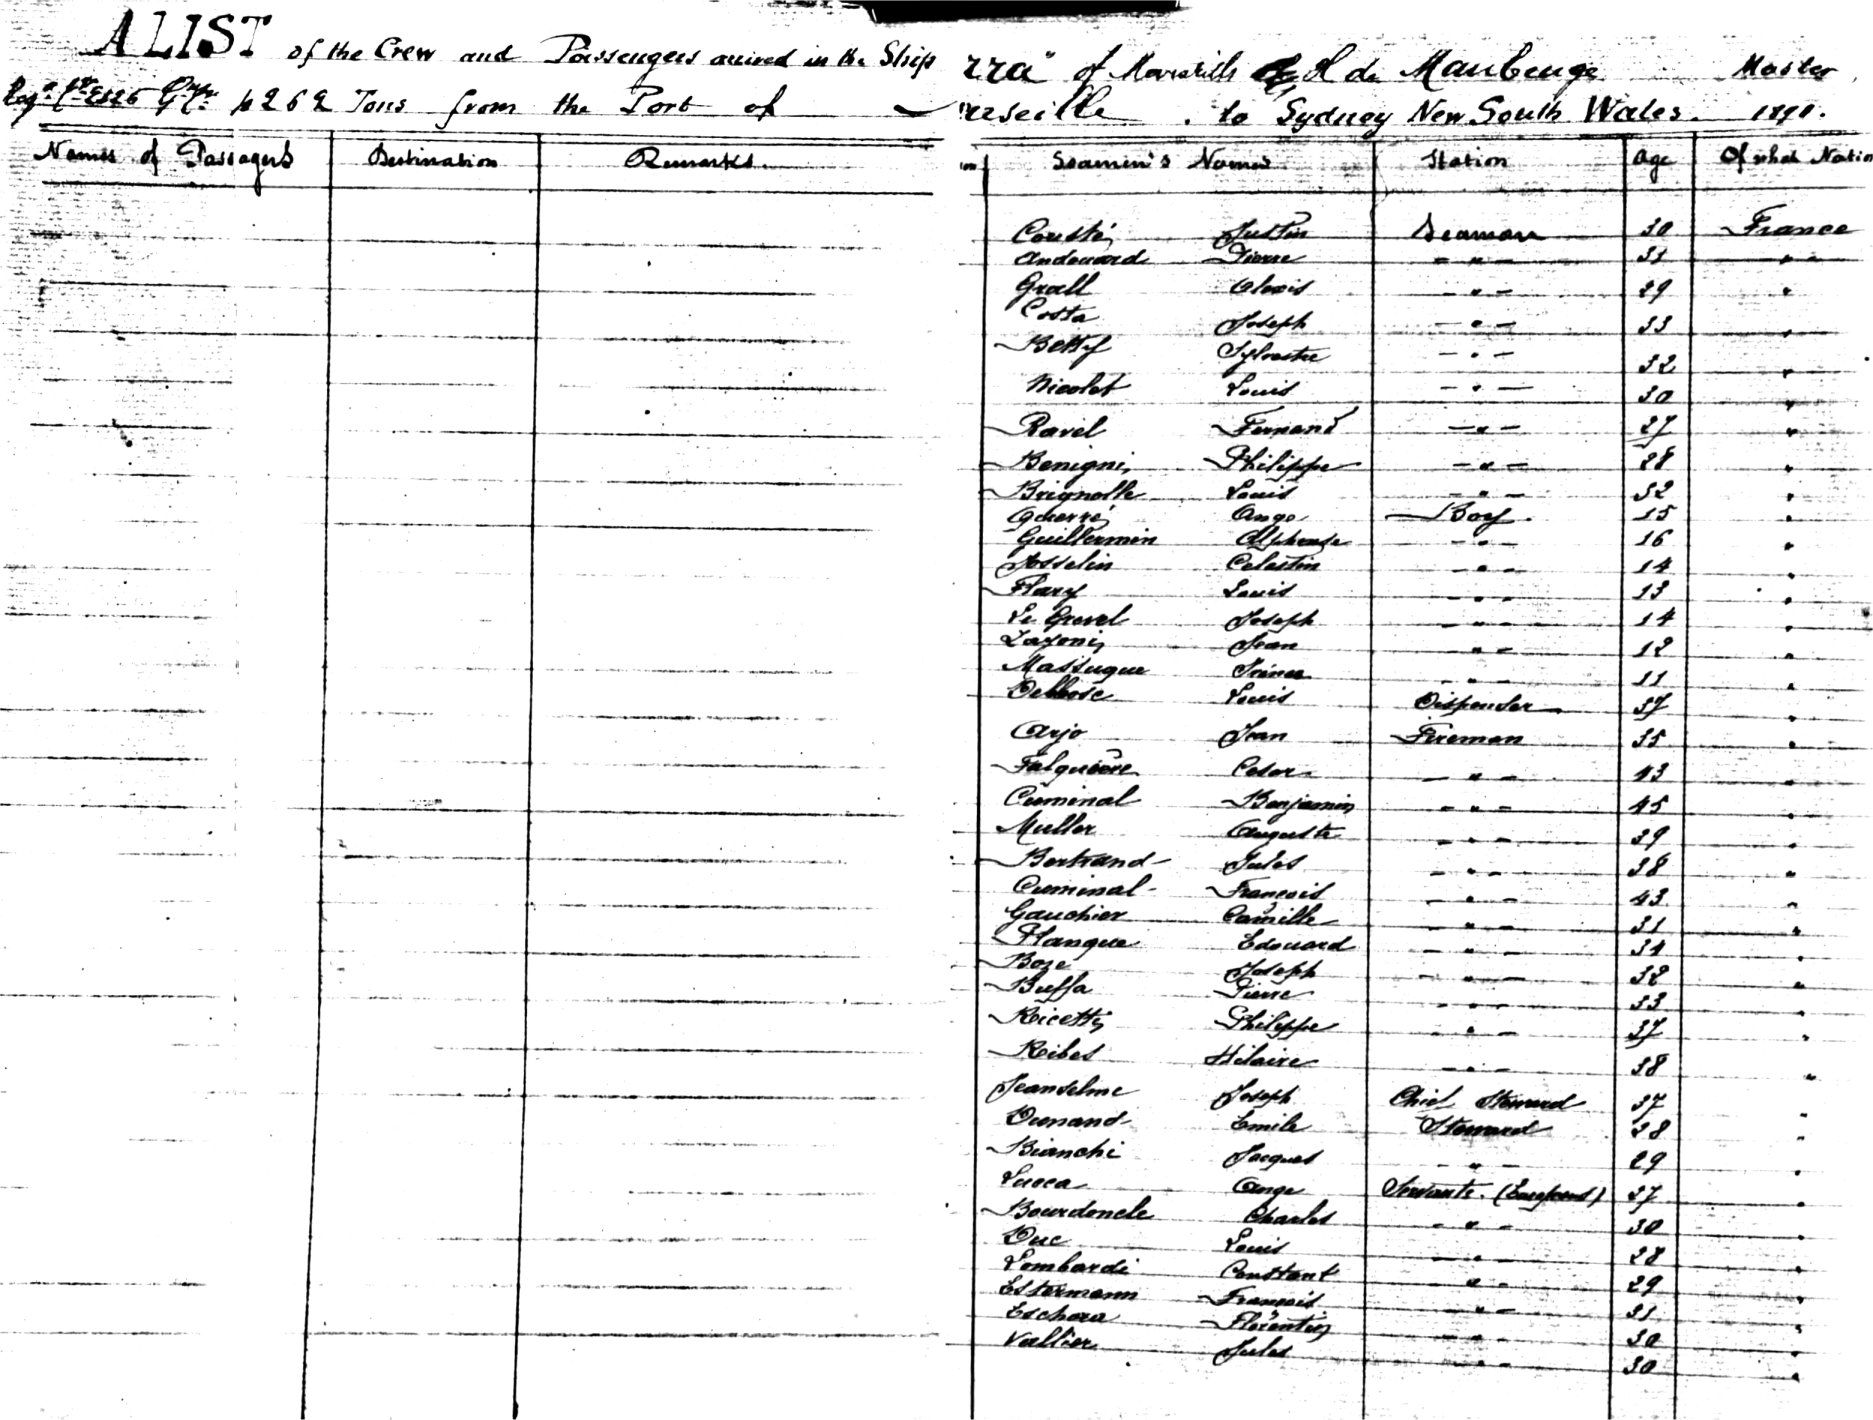 A LIST of the Crew and Passengers arrived in the Ship
Tons from the Port of
Names of Passagers Destination Remarks
rra" of Marseills H de Maubeuge Master
rseille to Sydney New South Wales 1891.
on Seamen's Names Station Age Of what Natio
Cousté, Justin Seaman 30 France
Andouard Pierre - " - 33 "
Grall Alexis - " - 29 "
Costa Joseph - " - 33 "
Betty Sylvestre - " - 32 "
Nicolet Louis - " - 30 "
Ravel Fernand - " - 27 "
Benigni Philippe - " - 28 "
Brignolle Louis - " - 32 "
Ange Boy 15 "
Guillermin Alphonse - " - 16 "
Josselin Celestin - " - 14 "
Flary Louis - " - 13 "
Le Grevel Joseph - " - 14 "
Jean - " - 12 "
Massugue - " - 11 "
Delbosc Louis Dispenser 37 "
Arjo Jean Fireman 35 "
Falquière Cesar - " - 43 "
Cuminal Benjamin - " - 45 "
Muller Auguste - " - 39 "
Bertrand Jules - " - 38 "
Cuminal François - " - 43 "
Gauchier Camille - " - 31 "
Planque Edouard - " - 34 "
Boze Joseph - " - 32 "
Buffa Pierre - " - 33 "
Ricetti Philippe - " - 37 "
Ribes Hilaire - " - 38 "
Jeanselme Joseph Chief Steward 37 "
Dunand Emile Steward 28 "
Bianchi Jacques - " - 29 "
Lucca Ange Servants. (Européens) 37 "
Bourdoncle Charles - " - 30 "
Duc Louis - " - 28 "
Lombardi Constant - " - 29 "
Estermann François - " - 31 "
Florentin - " - 30 "
Vallier Jules - " - 30 "